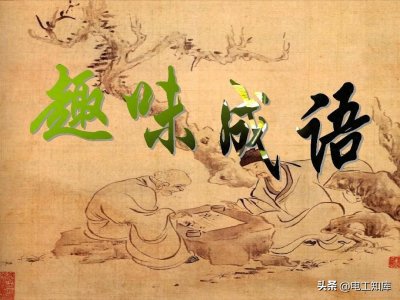 趣味成语
头条 @电工知库